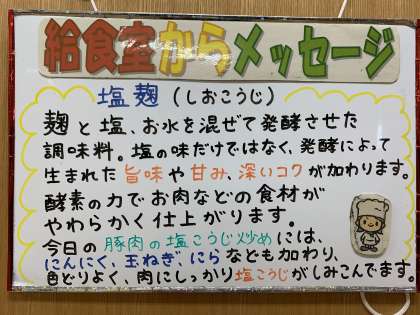 給食室からメッセージ
塩麹(しおこうじ)
麹と塩、お水を混ぜて発酵させた
調味料。塩の味だけではなく、発酵によって
生まれた旨味や甘み、深いコクが加わります。
酵素の力でお肉などの食材が
やわらかく仕上がります。
今日の豚肉の塩こうじ炒めには、
にんにく、玉ねぎ、にらなども加わり、
色どりよく、肉にしっかり塩こうじがしみこんでます。